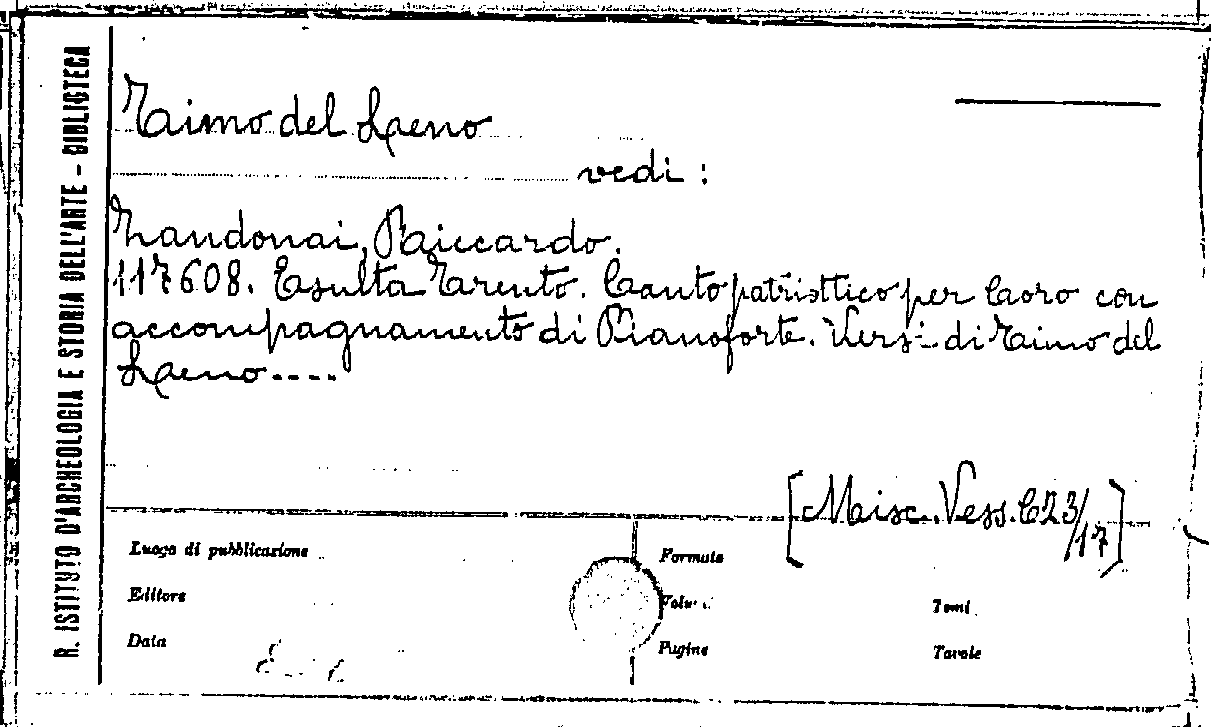 R. ISTITUTO D'ARCHEOLOGIA E STORIA DELL'ARTE - BIBLIOTECA
Taimo del Leno
vedi :
Zandonai, Riccardo.
117608. Esulta Trento. Canto patriottico per Coro con
accompagnamento di Pianoforte. Versi di Taimo del
Leno....
[Misc. Vess. C23/17]
Luogo di pubblicazione
Formato
Editore
Volumi
Tomi
Data
Pagine
Tavole